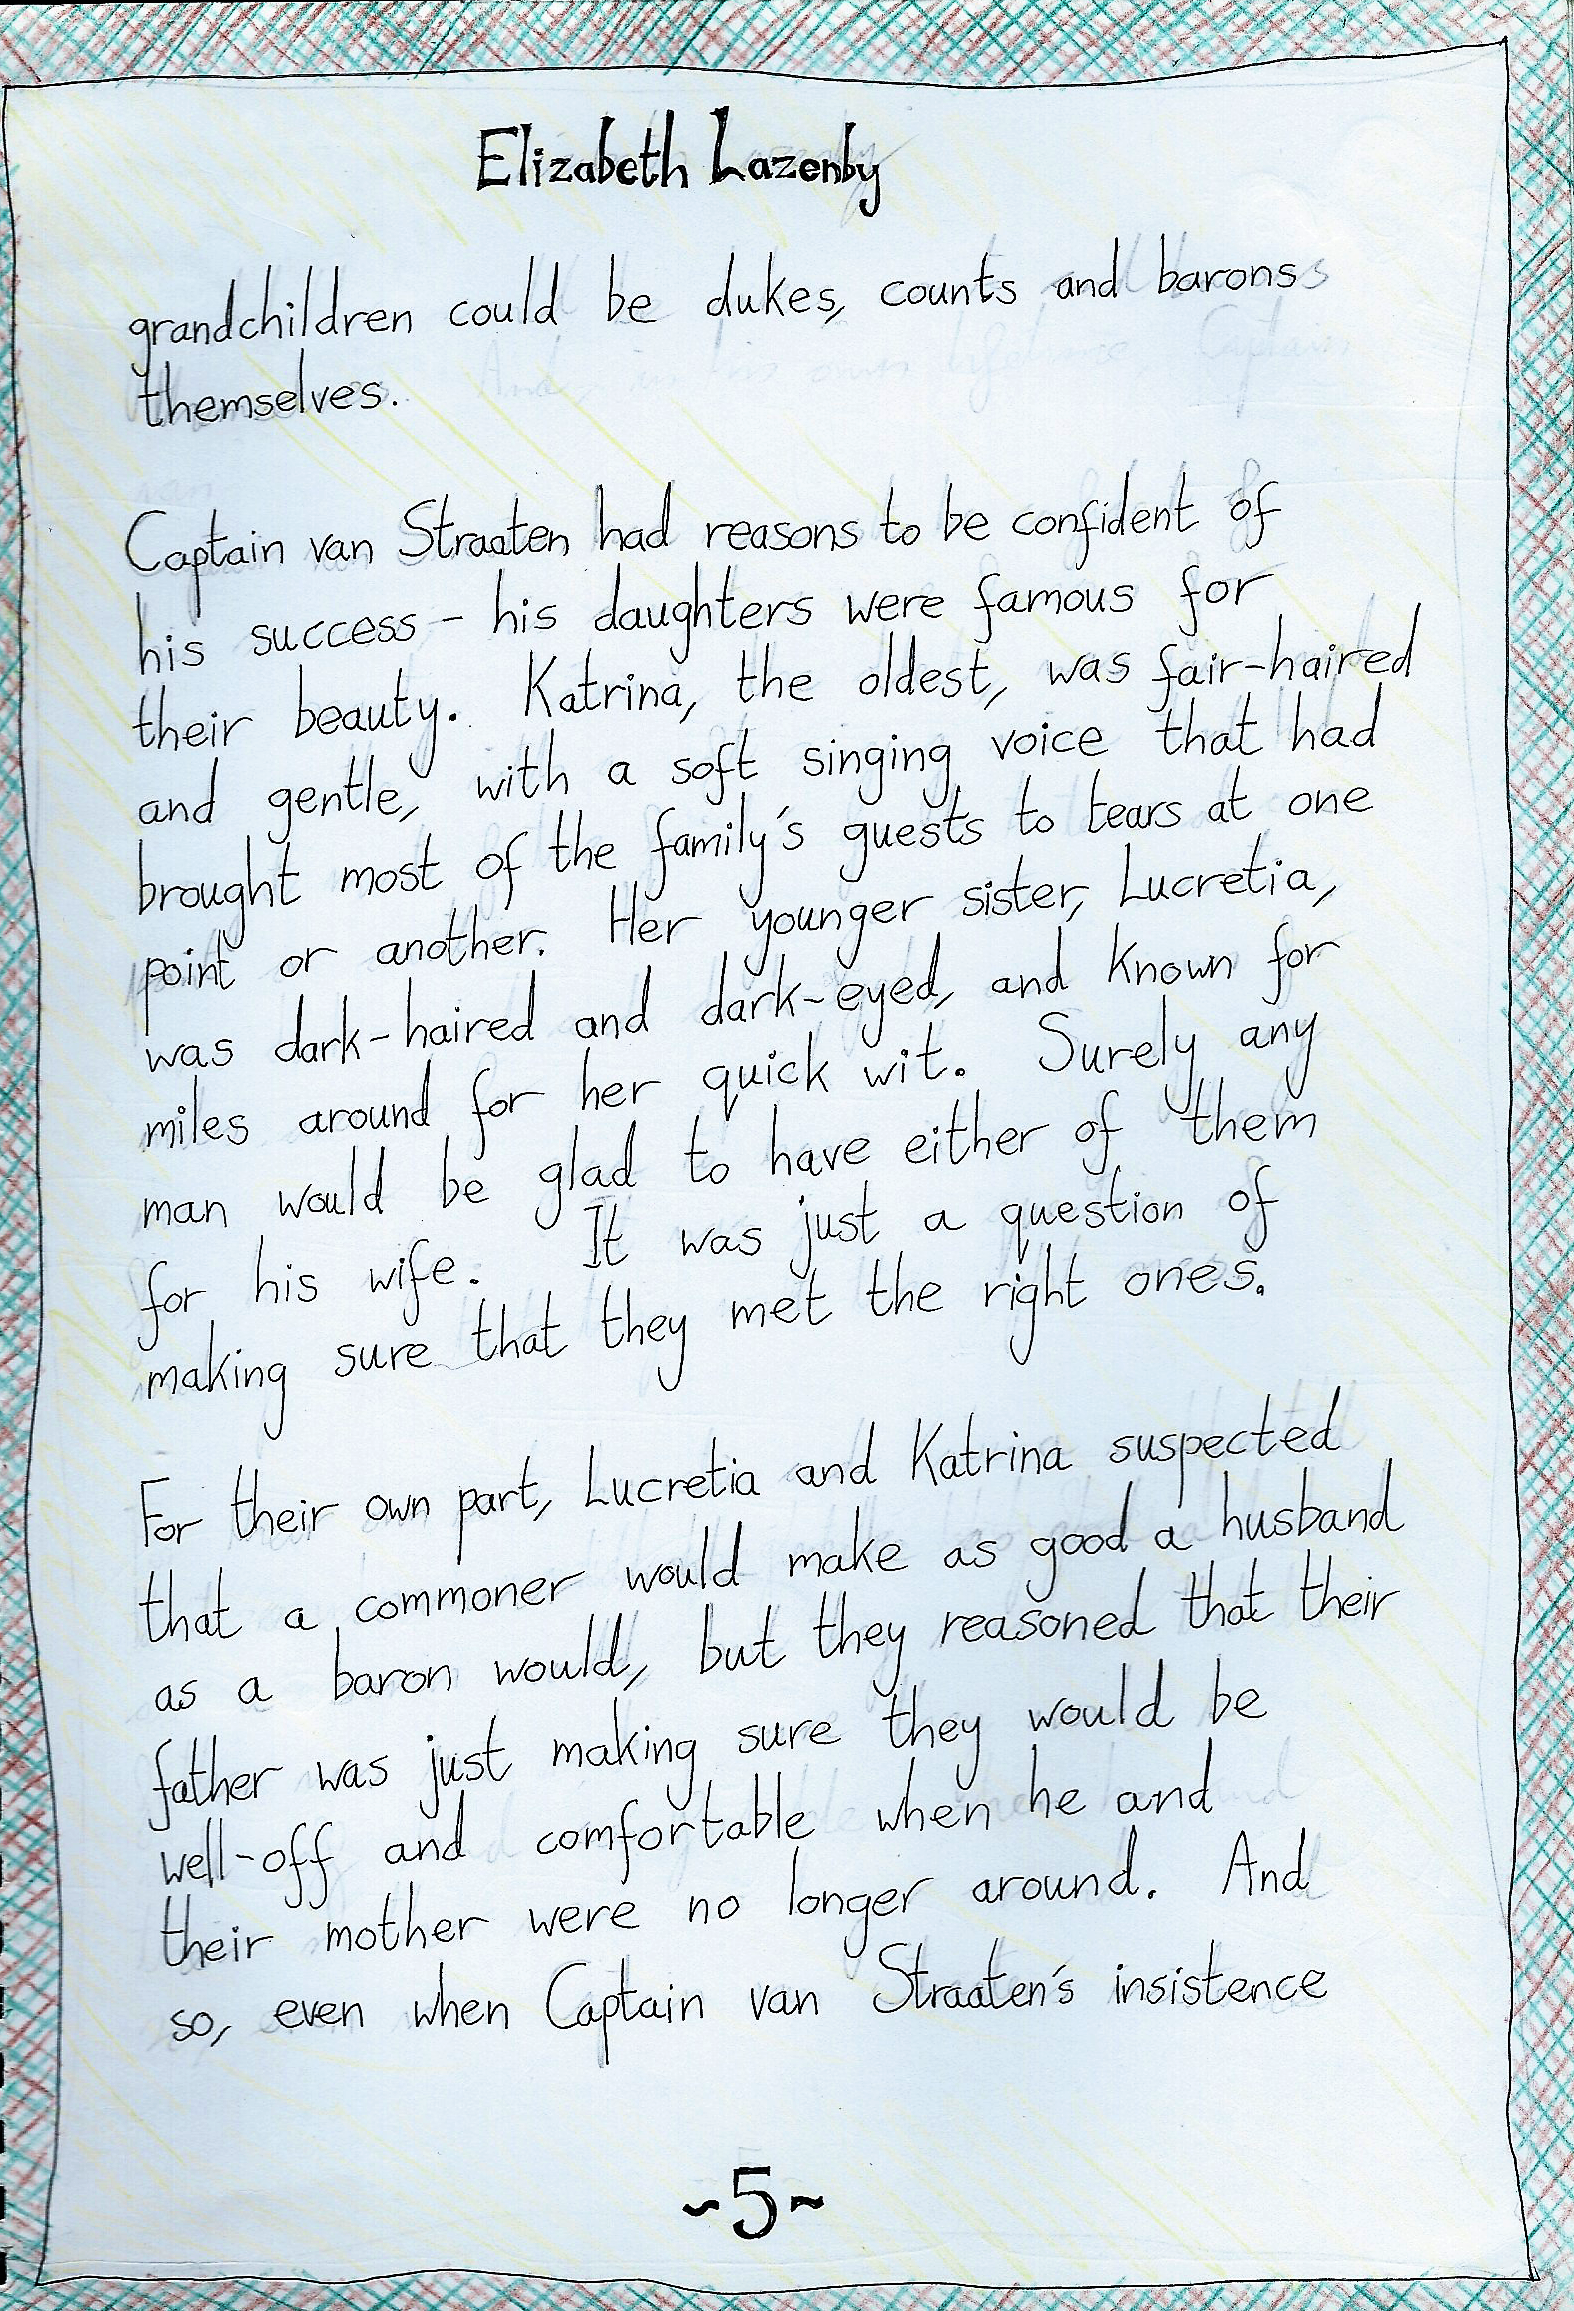 Elizabeth Lazenby
grandchildren could be dukes, counts and barons
themselves.
Captain van Straaten had reasons to be confident of
his success – his daughters were famous for
their beauty. Katrina, the oldest, was fair-haired
and gentle, with a soft singing voice that had
brought most of the family's guests to tears at one
point or another. Her younger sister, Lucretia,
was dark-haired and dark-eyed, and known for
miles around for her quick wit. Surely any
man would be glad to have either of them
for his wife. It was just a question of
making sure that they met the right ones.
For their own part, Lucretia and Katrina suspected
that a commoner would make as good a husband
as a baron would, but they reasoned that their
father was just making sure they would be
well-off and comfortable when he and
their mother were no longer around. And
so, even when Captain van Straaten's insistence
~5~